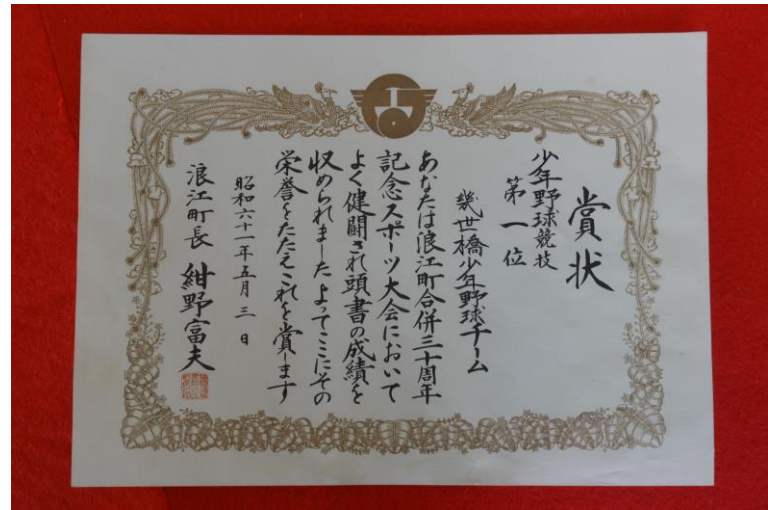 賞状
少年野球競技
第一位
幾世橋少年野球チーム
あなたは浪江町合併三十周年
記念スポーツ大会において
よく健闘され頭書の成績を
収められましたよってここにその
栄誉をたたえこれを賞します
昭和六十一年五月三日
浪江町長 紺野富夫